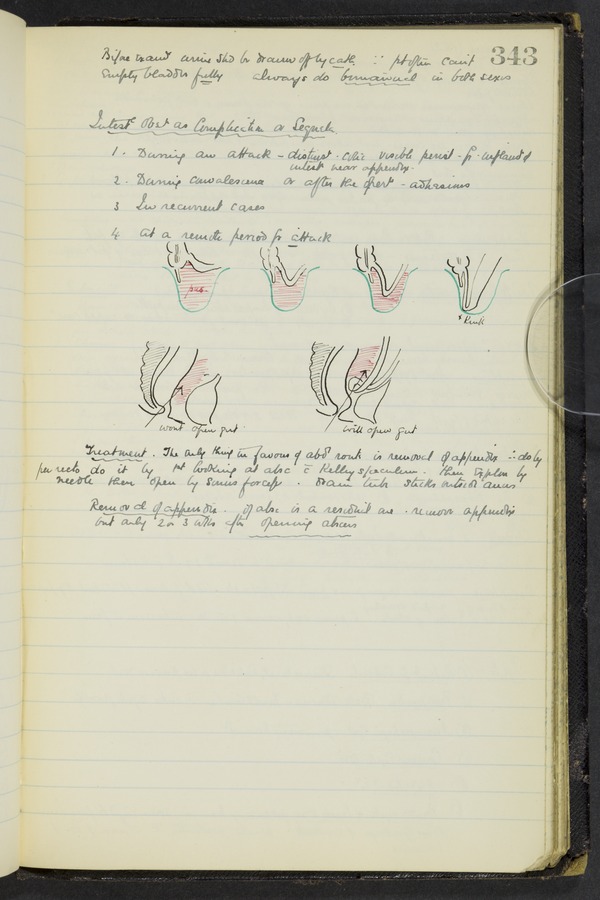 343
Before exam urine shd be drawn off by cath ∵ pt often can't
Empty bladder fully always do bimanual in both sexes
Intestl Obst as Complication or Sequela.
1. During an attack - distinct colic visible perist. fr inflamed
intest near appendix.
2. During convalescence or after the first - adhesions
3 In recurrent cases
4 at a remote period fr attack
pus
* Kink
wont open gut
will open gut
Treatment. The only thing in favour of abd route is removal of appendix ∴ do by
per recto do it by 1st looking at absc c̄ Kelly speculum. then explor by
needle then open by Sinus forceps. drain tube stitch outside anus
Removal of appendix. If absc is a resident one. remove appendix
but only 2 or 3 wks after opening abscess